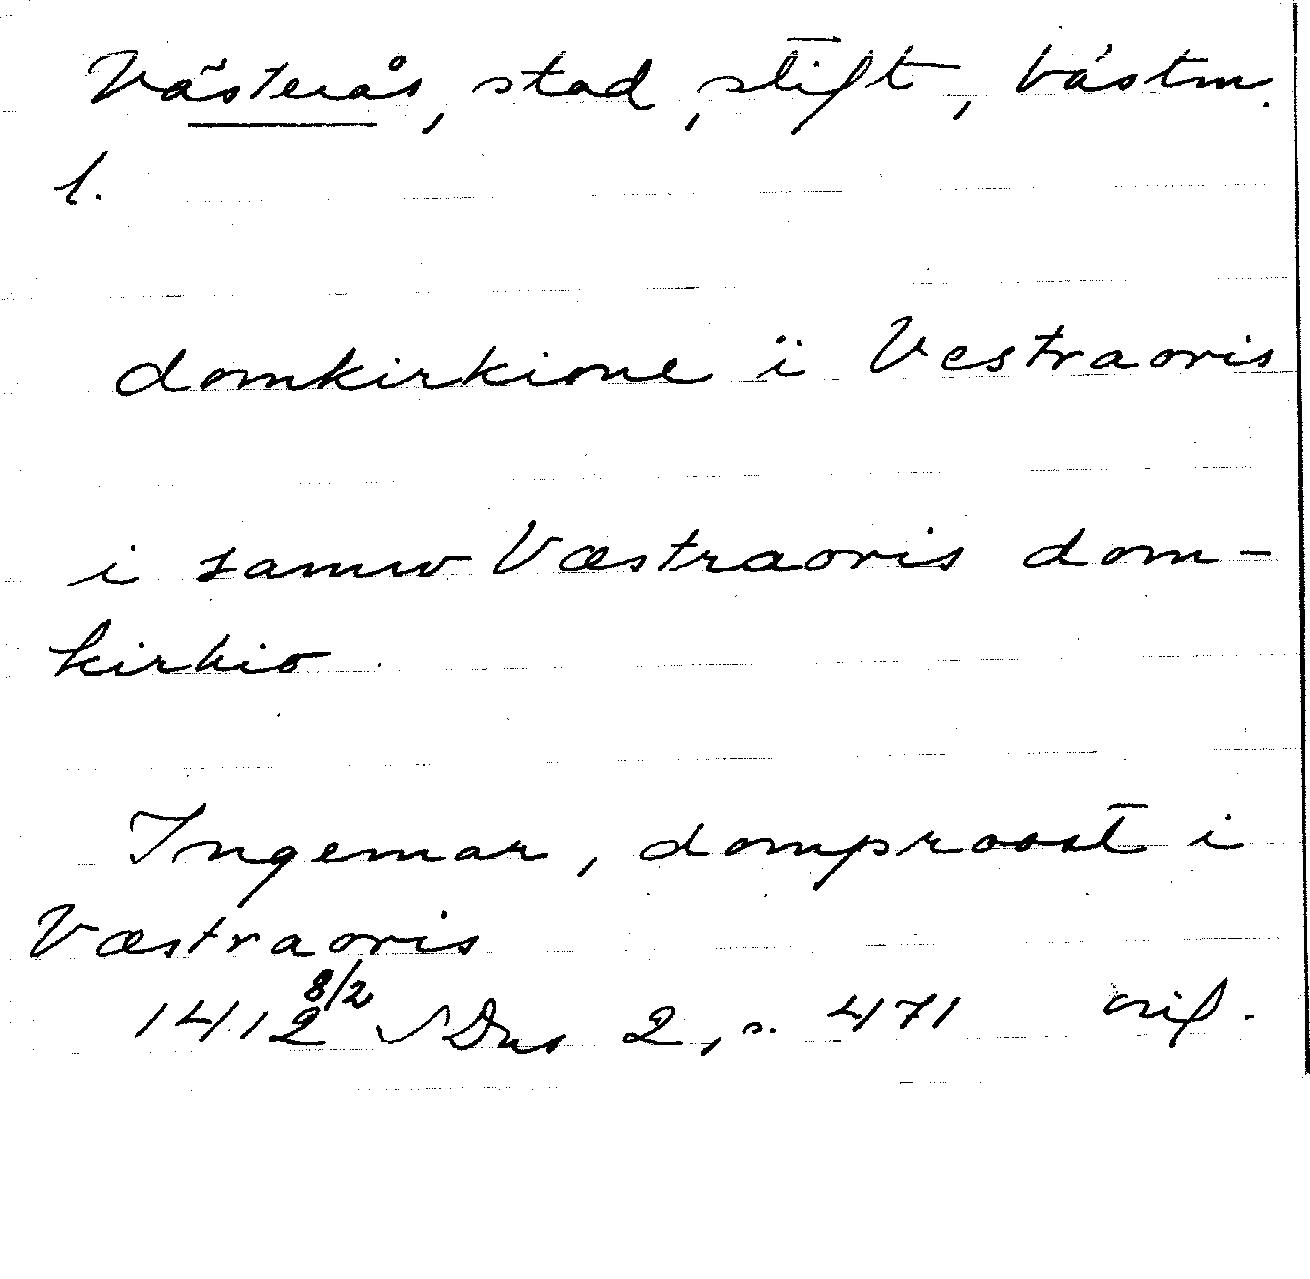 Västerås, stad, stift, Västm.
l.
domkirkione i Vestraoris
i samw Væstraoris dom-
kirkio
Ingemar, domproost i
Væstraoris
1412 8/2 SDns 2, s. 471 orig.